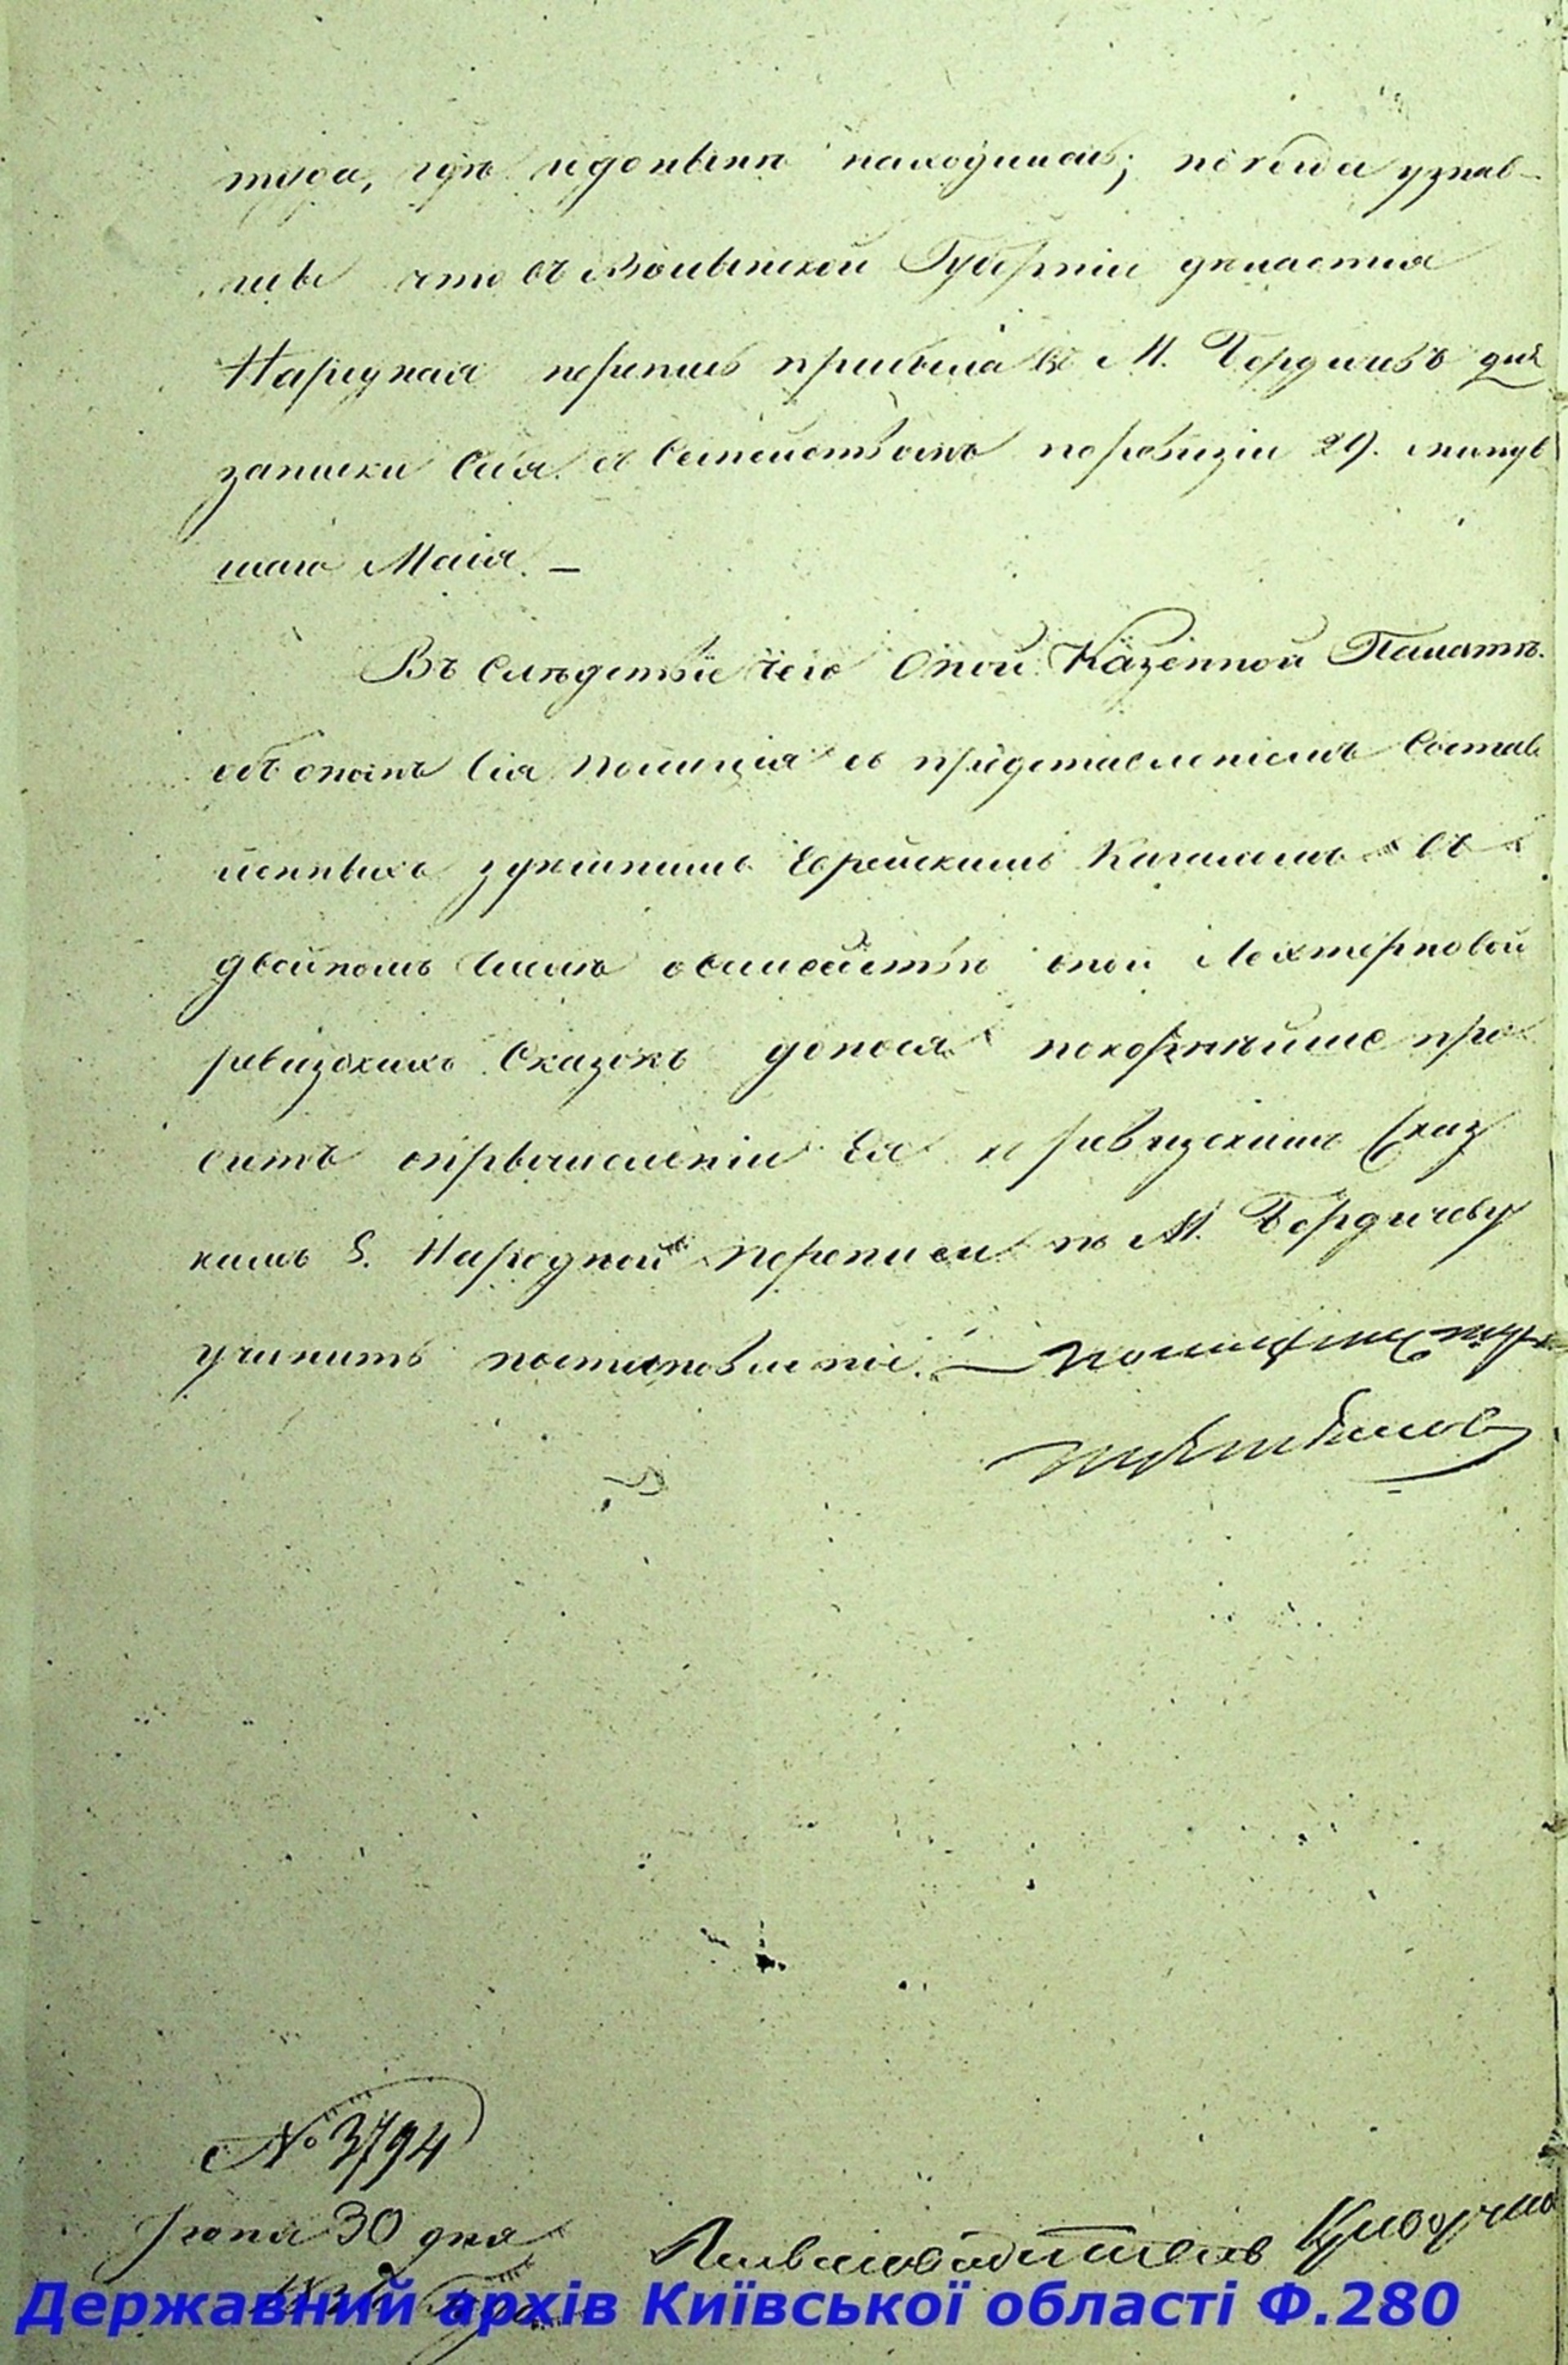 туда, гдѣ и донынѣ находилась; покуда узнав-
шы что въ Волынской Губерніи дѣлается
Народная перепись прибыла въ М. Бердичевъ для
записки Сія съ Семействомъ по ревизіи 29. минув
шаго Маія. —
Въ Слѣдствіе чего Оной Казенной Палатѣ.
объ ономъ Сія Полиція съ представленіемъ Состав
ленныхъ здѣшнимъ Еврейскимъ Кагаломъ въ
двойномъ числѣ о семействѣ оной Лехтерновой
ревизскихъ Сказокъ донося покорнѣйше про
ситъ о причисленіи Ея к ревизскимъ Сказ
камъ 8. Народной переписи по М. Бердичеву
учинить постановленіе. — Полицмейстеръ
№ 3794
Іюня 30 дня
Писмоводитель
Державний архів Київської області Ф.280